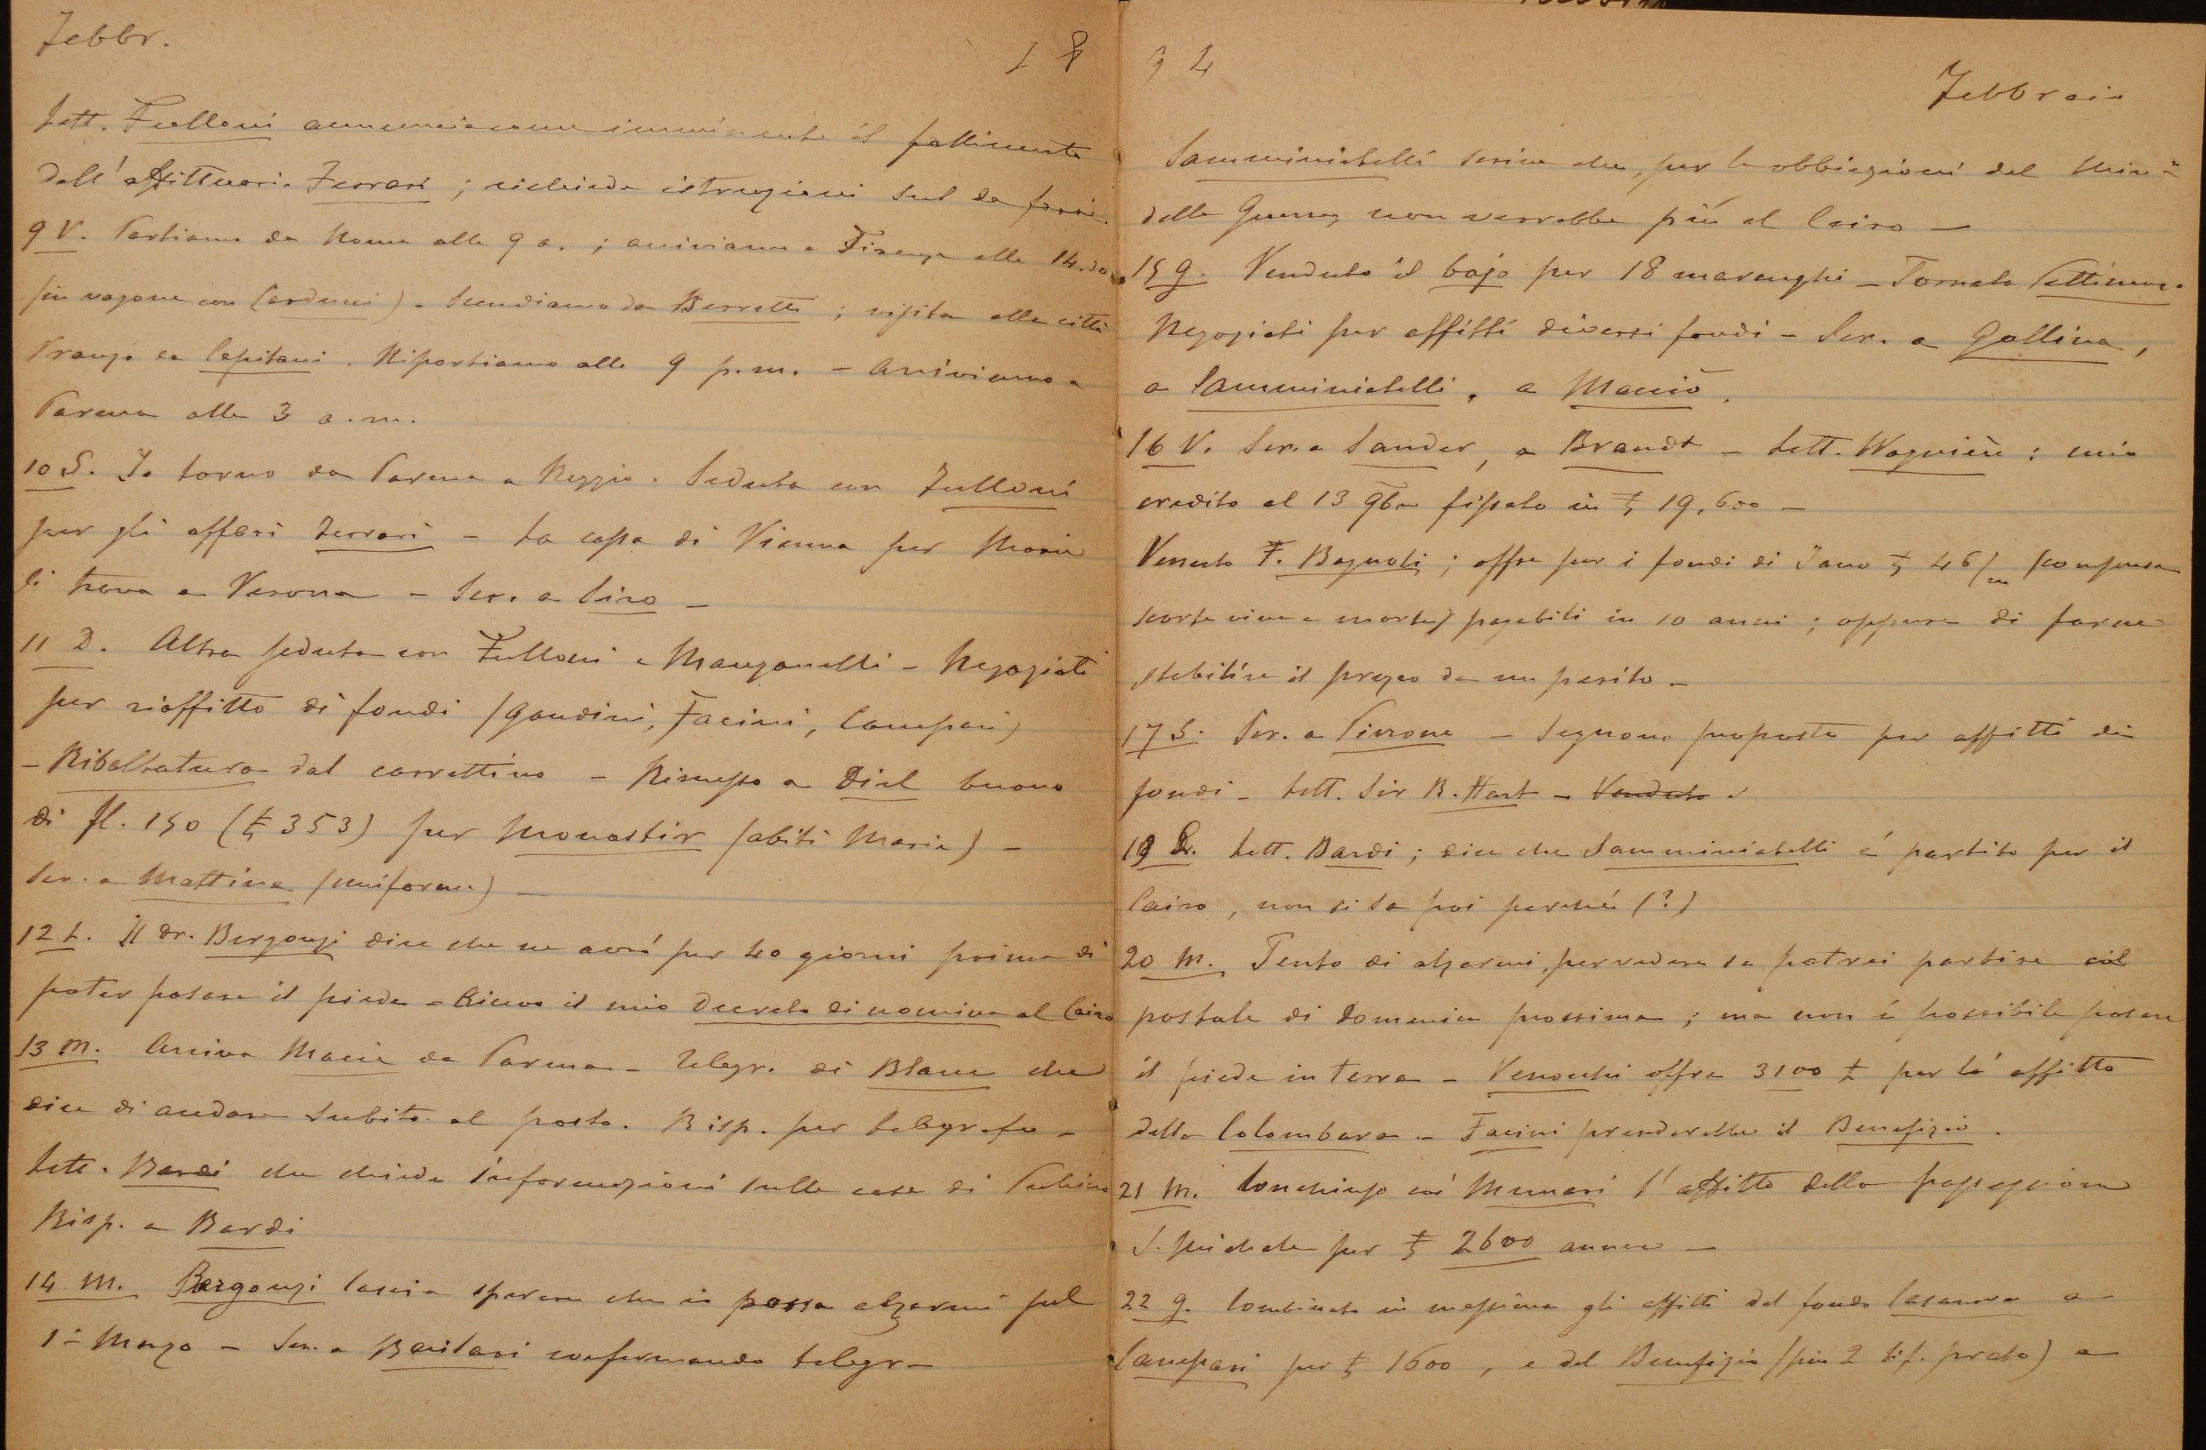 Febbr.
18
lett. Fulloni annunciarono imminente il fallimento
dell'affittuario Ferrari ; richiede istruzioni sul da farsi.
9 V. Partiamo da Roma alle 9 a. ; arriviamo a Firenze alle 14.30
(in vagone con Carducci) - Scendiamo da Berretti ; visita alla città
Pranzo da Capitani . Ripartiamo alle 9 p.m. - Arriviamo a
Parma alle 3 a.m.
10 S. Io torno da Parma a Reggio . Seduta con Fulloni
per gli affari Ferrari - La cassa di Vienna per Maria
si trova a Verona - Scr. a Siro -
11 D. Altra seduta con Fulloni e Manzanelli - Negoziati
per riaffitto di fondi (Gandini, Facini, Campari)
- Ribaltatura dal carrettino - Rimesso a Diel buono
di fl. 150 (£ 353) per Monastir (abiti Maria) -
Scr. a Mattina (uniforme) -
12 L. Il dr. Bergonzi dice che ne avrò per 40 giorni prima di
poter posare il piede - Ricevo il mio decreto di nomina al Cairo
13 M. Arriva Maria da Parma - Telegr. di Blanc che
dice di andare subito al posto. Risp. per telegrafo -
Lett. Bardi che chiede informazioni sulle cose di
Risp. a Bardi
14 M. Bergonzi lascia sperare che io possa alzarmi pel
1° Marzo - Scr. a Bardi confermando telegr -
94
Febbraio
Samminiatelli scrive che, per le obbiezioni del Min°
della Guerra, non verrebbe più al Cairo -
15 G. Venduto il bajo per 18 marenghi - Tornata
Negoziati per affitti diversi fondi - Scr. a Gallina,
a Samminiatelli, a Macciò.
16 V. Scr. a Sander, a Brandt - Lett. Wagnière : mio
credito al 13 9bre fissato in £ 19,600 -
Venuto F. Bagnoli ; offre per i fondi di Jano £ 46/m (comprese
scorte vive e morte) pagabili in 10 anni ; oppure di farne
stabilire il prezzo da un perito -
17 S. Scr. a Pirrone - Seguono proposte per affitti di
fondi - Lett. Sir R. Hart - Venduto
18 D. Lett. Bardi ; dice che Samminiatelli è partito per il
Cairo , non si sa poi perchè (?)
20 M. Tento di alzarmi, per vedere se potrei partire col
postale di Domenica prossima ; ma non è possibile posare
il piede in terra - Veronchi offre 3100 £ per l'affitto
della Colombara - Facini prenderebbe il Benefizio .
21 M. Conchiuso coi Munari l'affitto della possessione
S. Michele per £ 2600 annue -
22 G. Combinato in massima gli affitti del fondo Casanova a
Campari per £ 1600 , e del Benefizio (più 2 bif. prato) a